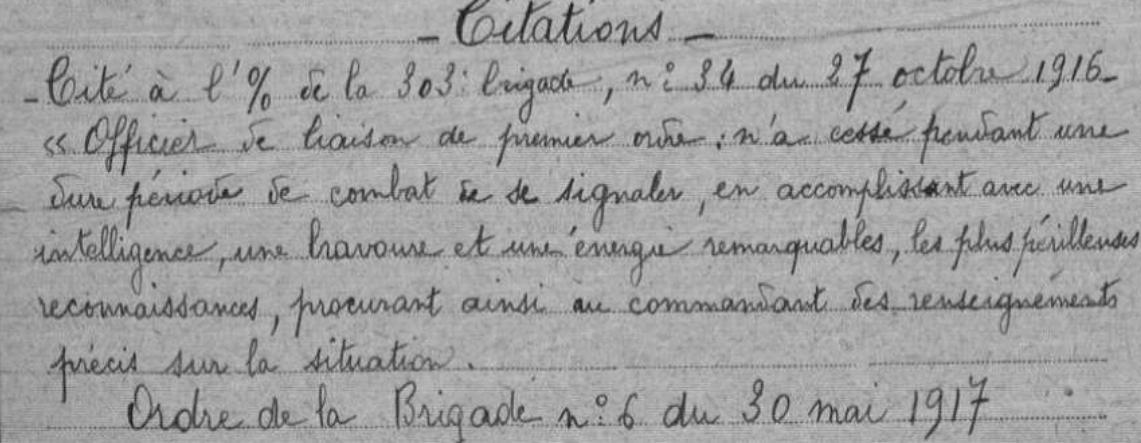 - Citations -
- Cité à l'% de la 303e brigade, n° 34 du 27 octobre 1916 -
« Officier de liaison de premier ordre : n'a cessé pendant une
dure période de combat de se signaler, en accomplissant avec une
intelligence, une bravoure et une énergie remarquables, les plus périlleuses
reconnaissances, procurant ainsi au commandant des renseignements
précis sur la situation.
Ordre de la Brigade n° 6 du 30 mai 1917